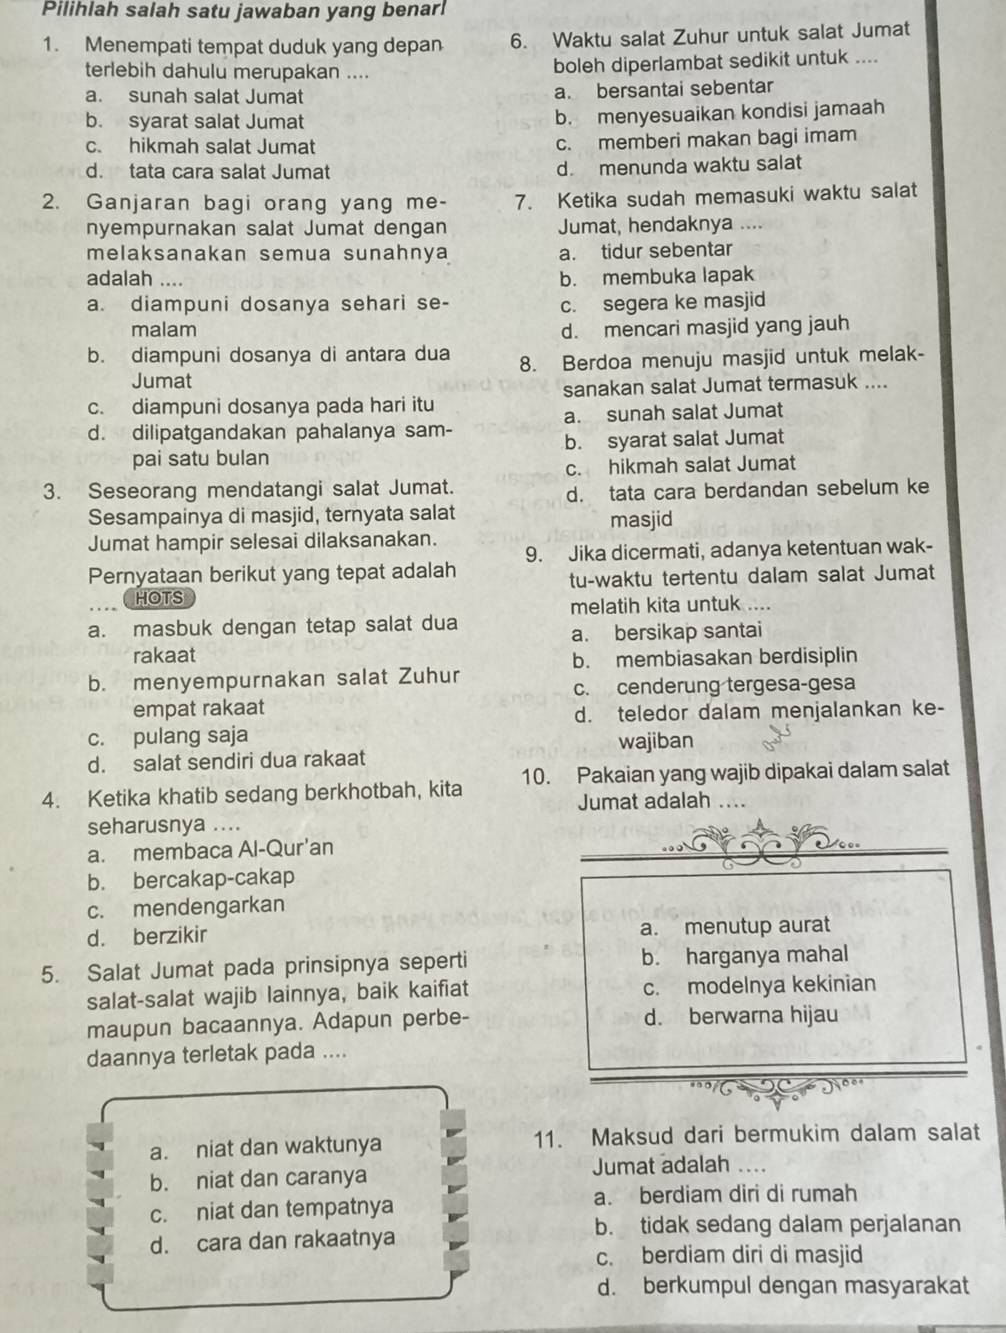 Pilihlah salah satu jawaban yang benar!
1. Menempati tempat duduk yang depan
terlebih dahulu merupakan ....
a. sunah salat Jumat
b. syarat salat Jumat
c. hikmah salat Jumat
d. tata cara salat Jumat
2. Ganjaran bagi orang yang me-
nyempurnakan salat Jumat dengan
melaksanakan semua sunahnya
adalah ....
a. diampuni dosanya sehari se-
malam
b. diampuni dosanya di antara dua
Jumat
c. diampuni dosanya pada hari itu
d. dilipatgandakan pahalanya sam-
pai satu bulan
3. Seseorang mendatangi salat Jumat.
Sesampainya di masjid, ternyata salat
Jumat hampir selesai dilaksanakan.
Pernyataan berikut yang tepat adalah
.... HOTS
a. masbuk dengan tetap salat dua
rakaat
b. menyempurnakan salat Zuhur
empat rakaat
c. pulang saja
d. salat sendiri dua rakaat
4. Ketika khatib sedang berkhotbah, kita
seharusnya ....
a. membaca Al-Qur'an
b. bercakap-cakap
c. mendengarkan
d. berzikir
5. Salat Jumat pada prinsipnya seperti
salat-salat wajib lainnya, baik kaifiat
maupun bacaannya. Adapun perbe-
daannya terletak pada ....
a. niat dan waktunya
b. niat dan caranya
c. niat dan tempatnya
d. cara dan rakaatnya
6. Waktu salat Zuhur untuk salat Jumat
boleh diperlambat sedikit untuk ....
a. bersantai sebentar
b. menyesuaikan kondisi jamaah
c. memberi makan bagi imam
d. menunda waktu salat
7. Ketika sudah memasuki waktu salat
Jumat, hendaknya ....
a. tidur sebentar
b. membuka lapak
c. segera ke masjid
d. mencari masjid yang jauh
8. Berdoa menuju masjid untuk melak-
sanakan salat Jumat termasuk ....
a. sunah salat Jumat
b. syarat salat Jumat
c. hikmah salat Jumat
d. tata cara berdandan sebelum ke
masjid
9. Jika dicermati, adanya ketentuan wak-
tu-waktu tertentu dalam salat Jumat
melatih kita untuk ....
a. bersikap santai
b. membiasakan berdisiplin
c. cenderung tergesa-gesa
d. teledor dalam menjalankan ke-
wajiban
10. Pakaian yang wajib dipakai dalam salat
Jumat adalah ....
a. menutup aurat
b. harganya mahal
c. modelnya kekinian
d. berwarna hijau
11. Maksud dari bermukim dalam salat
Jumat adalah ....
a. berdiam diri di rumah
b. tidak sedang dalam perjalanan
c. berdiam diri di masjid
d. berkumpul dengan masyarakat